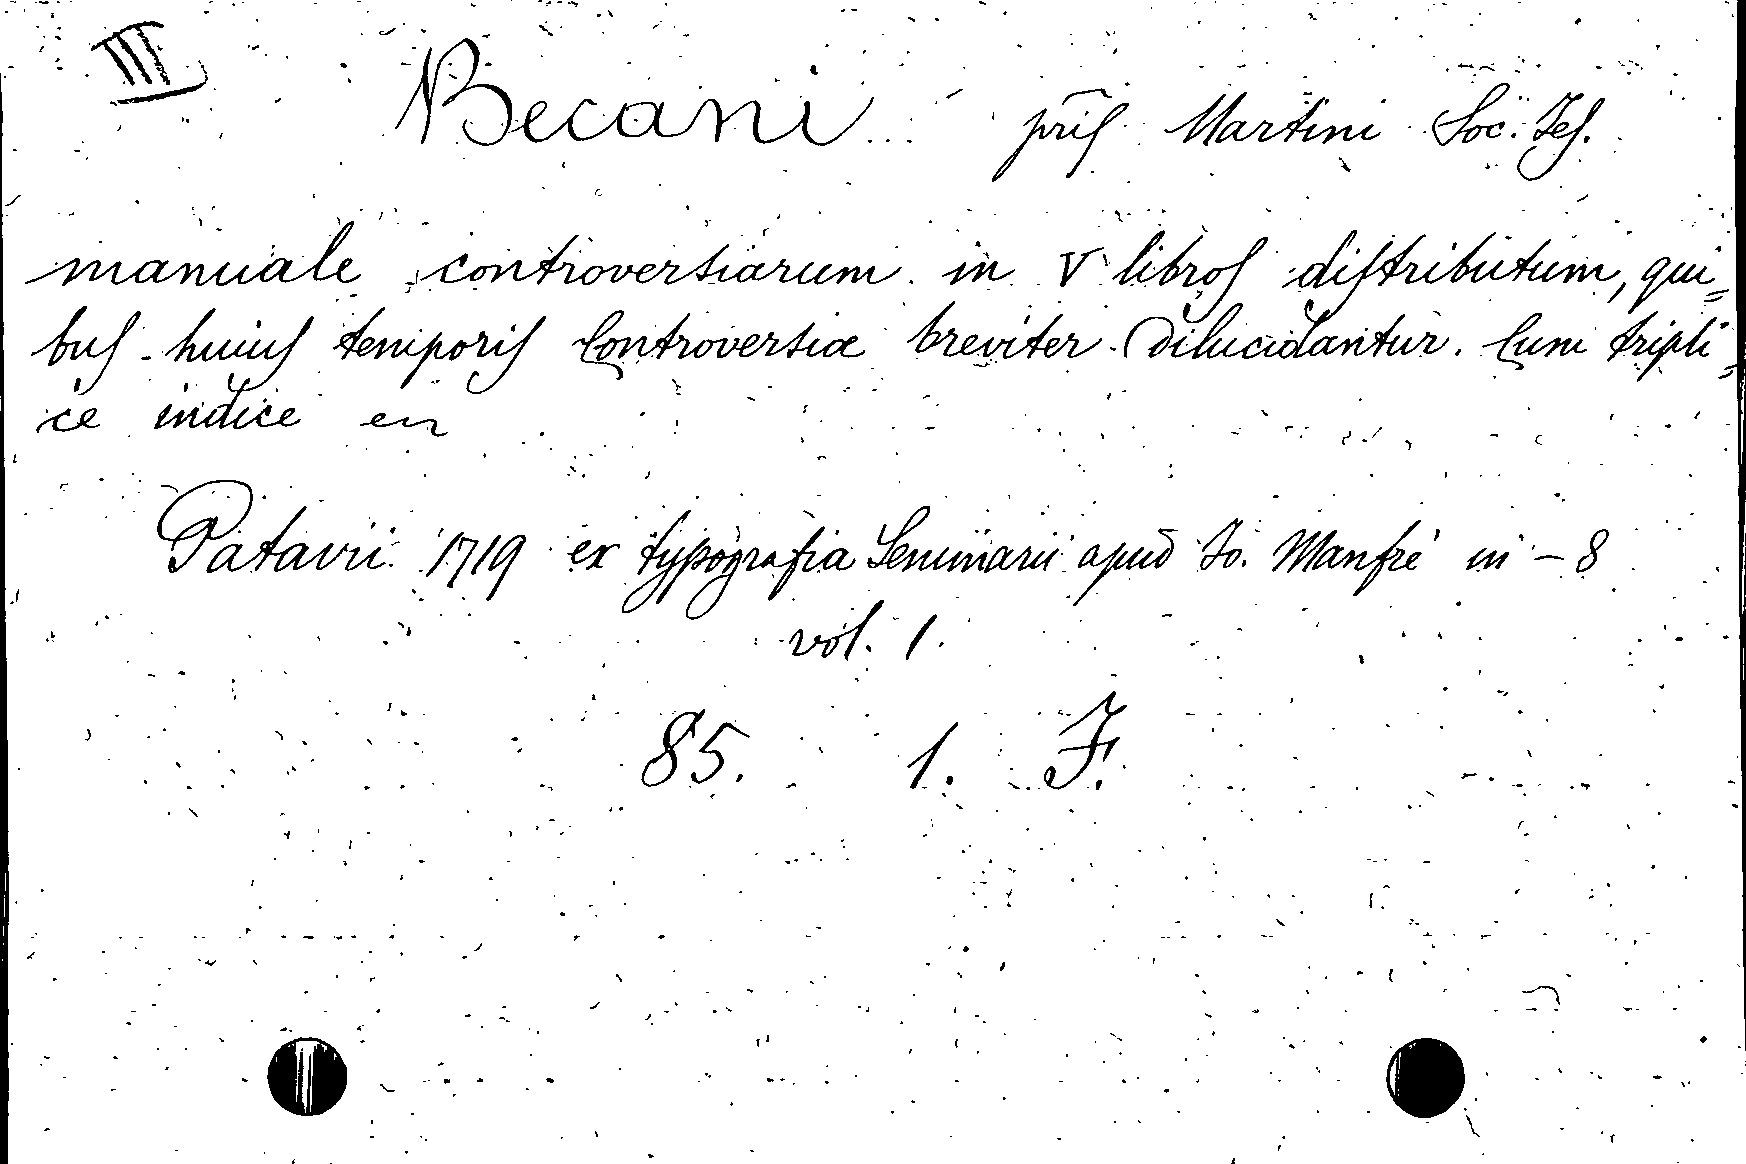 III
Becani pris Martini Soc. Jes.
manuale controversiarum in V libros distributum, qui,,
bus huius temporis Controversiæ breviter dilucidantur. Cum tripli,,
ce indice en
Patavii 1719 ex typografia Seminarii apud Jo. Manfrè in - 8
vol. 1.
85. 1. F.